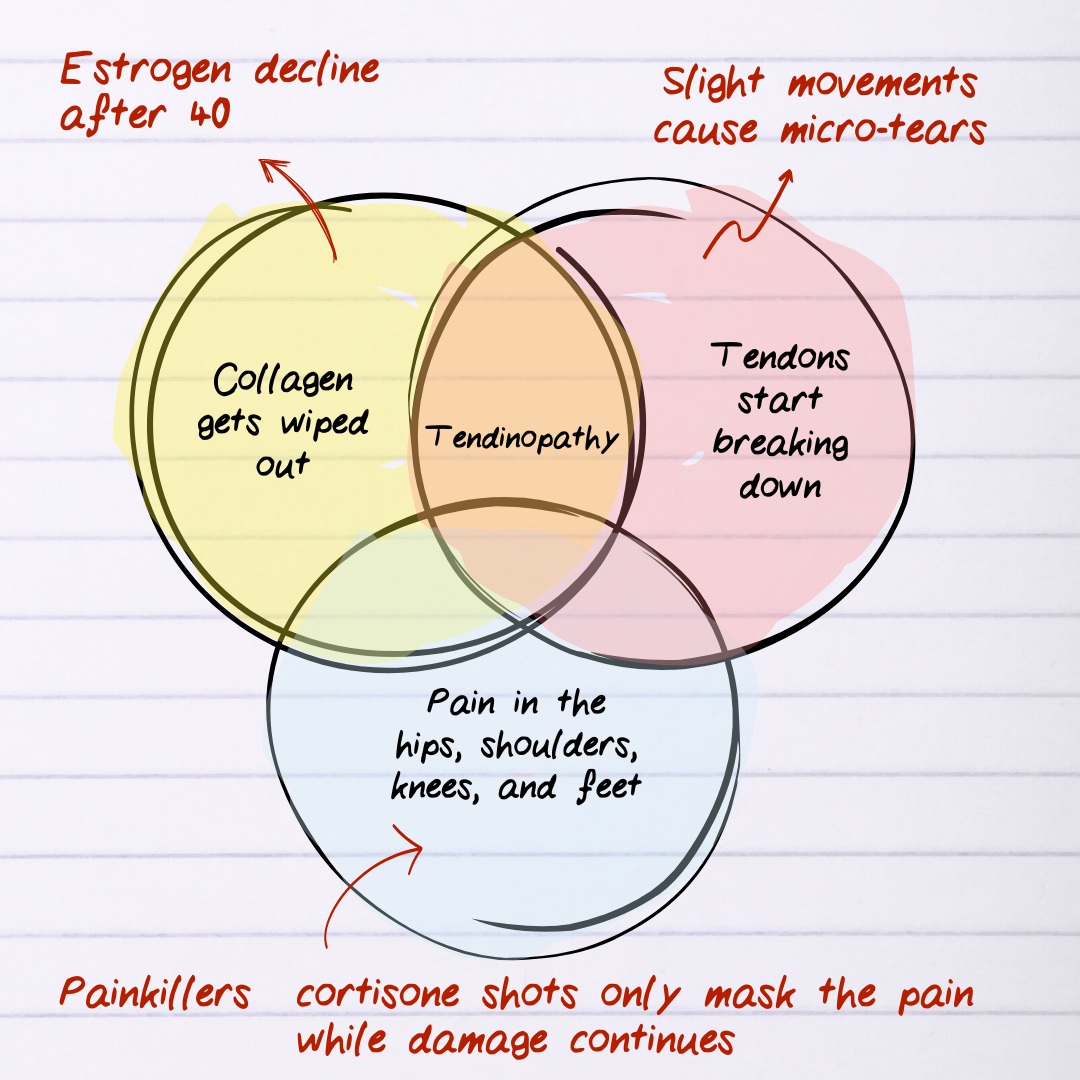 Estrogen decline
after 40
Slight movements
cause micro-tears
Collagen
gets wiped
out
Tendinopathy
Tendons
start
breaking
down
Pain in the
hips, shoulders,
knees, and feet
Painkillers cortisone shots only mask the pain
while damage continues